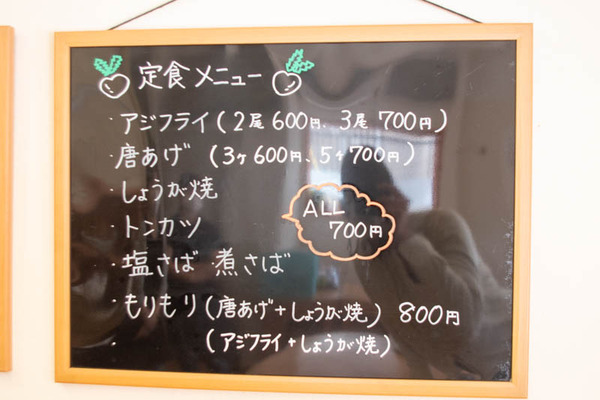 定食メニュー
・アジフライ(2尾600円、3尾700円)
・唐あげ (3ヶ600円、5ヶ700円)
・しょうが焼
・トンカツ
ALL
700円
・塩さば ・煮さば
・もりもり(唐あげ+しょうが焼) 800円
・ (アジフライ+しょうが焼)